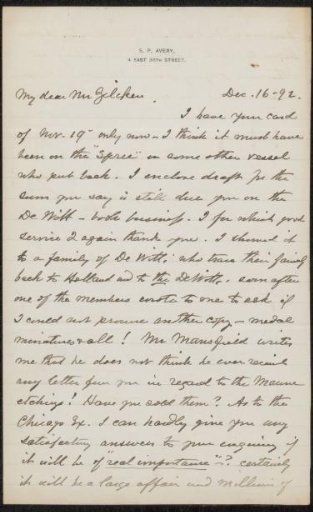 S. P. AVERY,
4 EAST 38TH STREET.
My dear Mr Zilcken
Dec. 16-92.
I have your card
of Nov. 19th only now - I think it must have
been on the "Spree" or some other vessel
who put back. I enclose draft for the
sum you say is still due you on the
De Witt - book business. I for which good
service I again thank you. I showed it
to a family of De Witt, who trace their family
back to Holland and to the De Witts. soon after
one of the members wrote to me to ask if
I could not procure another copy - medal
miniatures & all! Mr Mansfield writes
me that he does not think he ever received
any letter from you in regard to the
etchings! Have you sold them? As to the
Chicago Ex. I can hardly give you any
satisfactory answers to your enquiry if
it will be of "real importance"? certainly
it will be a large affair and millions of